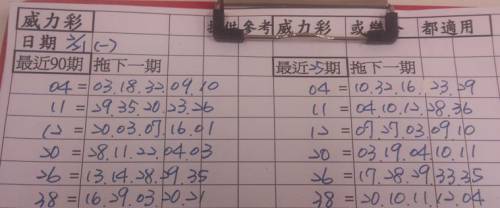 威力彩 供參考 威力彩 或 都適用
日期 (一)
最近90期 拖下一期 最近25期 拖下一期
04 = 03.18.32.09.10 04 = 10.32.16.23.29
11 = 29.35.20.23.26 11 = 04.10.12.28.36
12 = 20.03.07.16.01 12 = 07.29.03.09.10
20 = 28.11.22.04.03 20 = 03.19.04.10.11
26 = 13.14.28.29.35 26 = 17.28.29.33.35
38 = 16.29.03.20.21 38 = 20.10.11.12.04